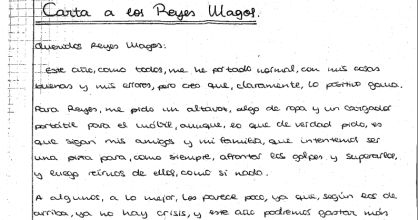 Carta a los Reyes Magos.
Queridos Reyes Magos:
Este año, como todos, me he portado normal, con mis cosas
buenas y mis errores, pero creo que, claramente, lo positivo gana.
Para Reyes, me pido un altavoz, algo de ropa y un cargador
portátil para el móvil, aunque, lo que de verdad pido, es
que sigan mis amigos y mi familia, que intentemos ser
una piña para, como siempre, afrontar los golpes y superarlos,
y luego reírnos de ellos, como si nada.
A algunos, a lo mejor, les parece poco, ya que, según los de
arriba, ya no hay crisis, y este año podremos gastar más